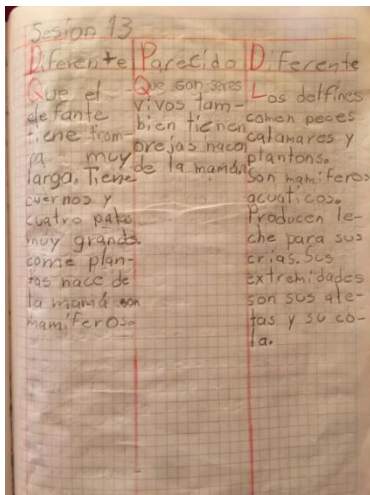 Sesion 13
Diferente
Que el
elefante
tiene trom-
pa muy
larga. Tiene
cuernos y
cuatro patas
muy grands.
come plan-
tas nace de
la mamá son
mamíferos.
Parecido
Que son seres
vivos tam-
bien tienen
orejas nacen
de la mamá
Diferente
Los delfines
comen peces
calamares y
plantons.
Son mamiferos
acuáticos.
Producen le-
che para sus
crias. Sus
extremidades
son sus ale-
tas y su co-
la.